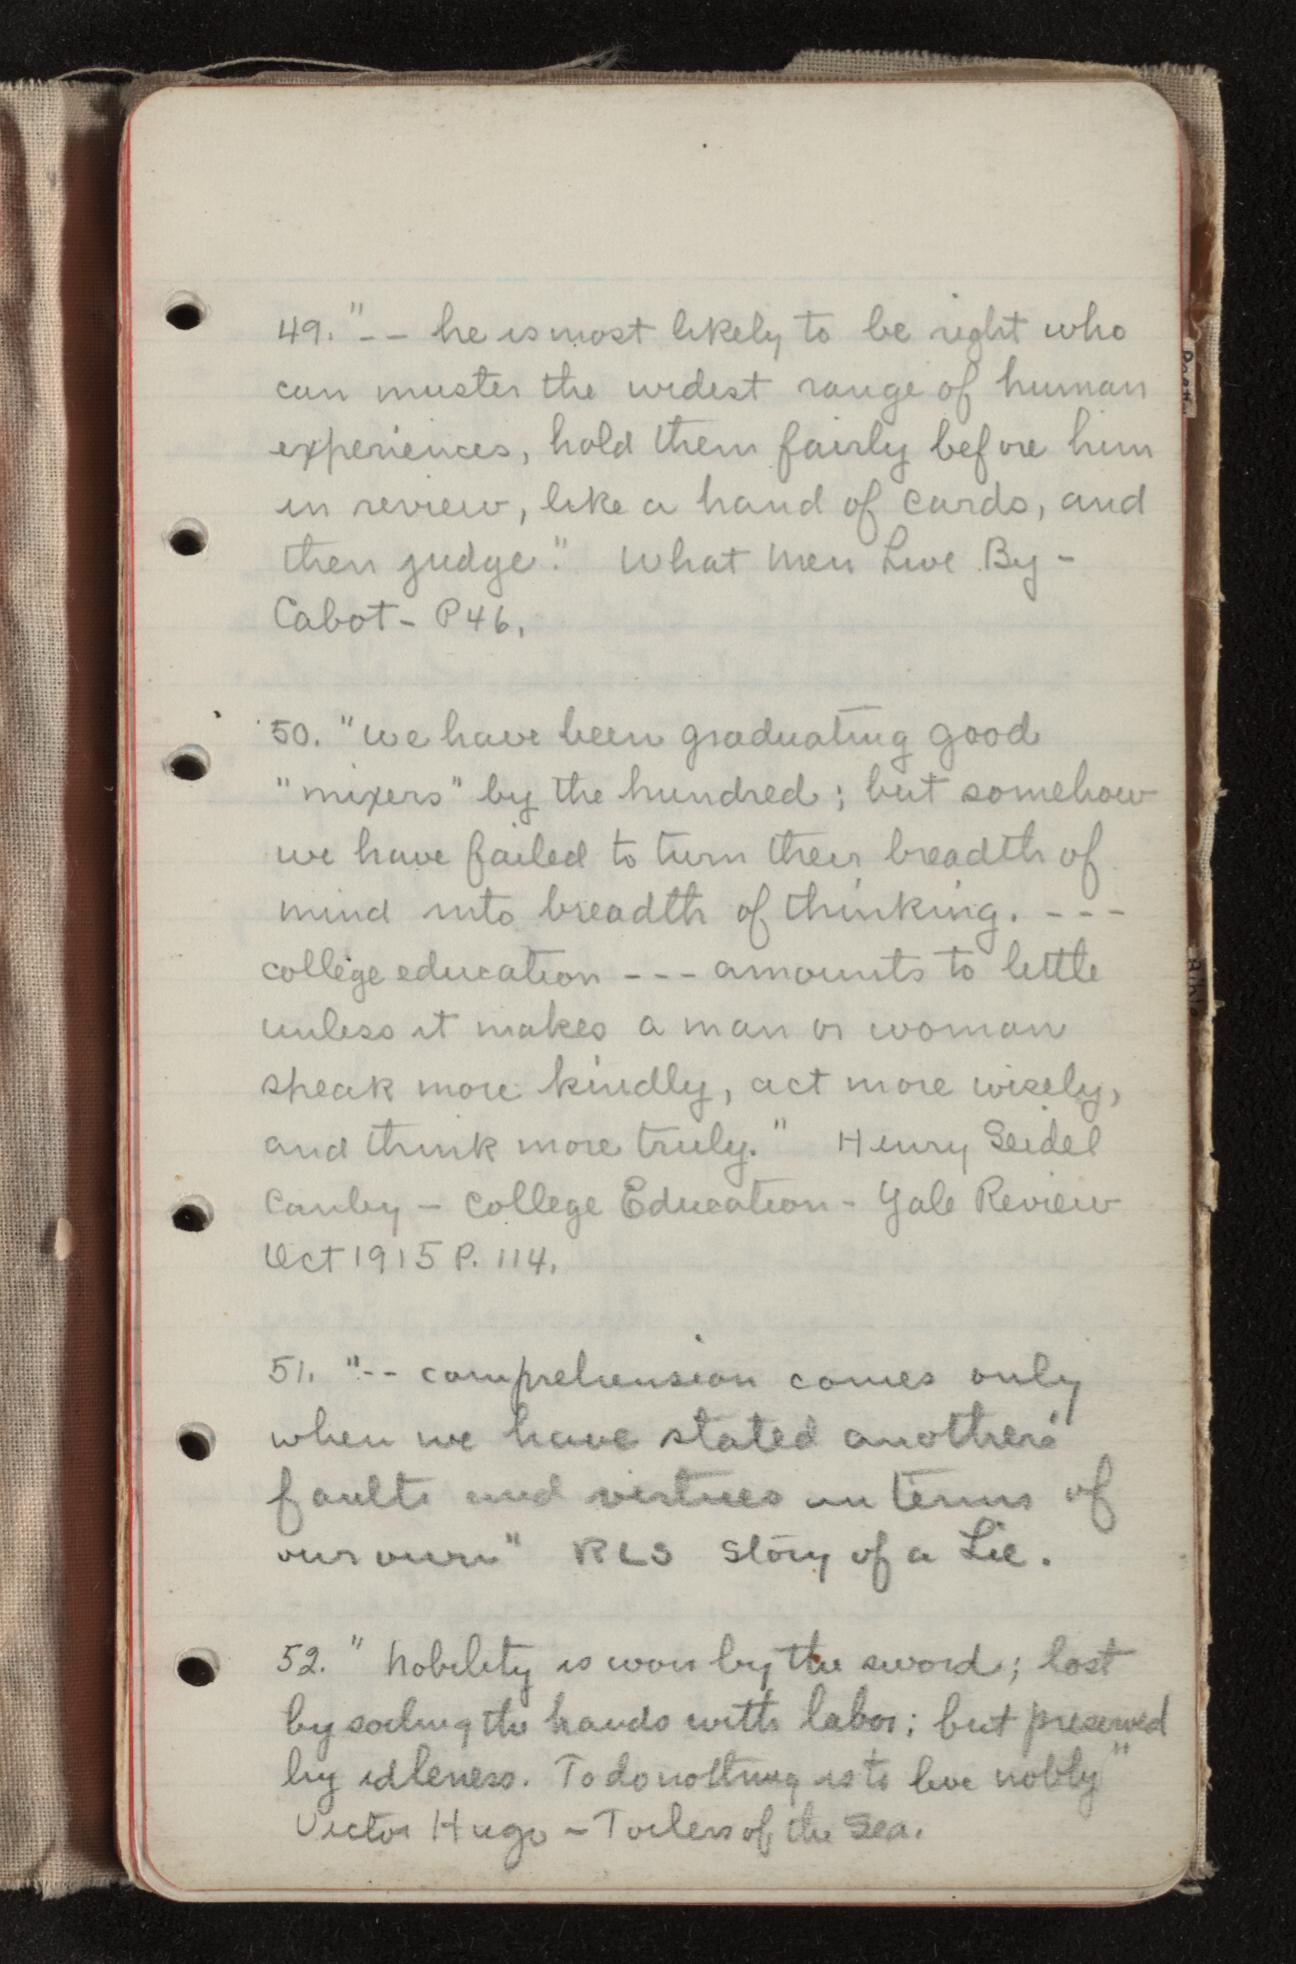 49. "-- he is most likely to be right who
can muster the widest range of human
experiences, hold them fairly before him
in review, like a hand of cards, and
then judge." What Men Live By -
Cabot - P46.
50. "We have been graduating good
"mixers" by the hundred; but somehow
we have failed to turn their breadth of
mind into breadth of thinking. ---
college education --- amounts to little
unless it makes a man or woman
speak more kindly, act more wisely,
and think more truly." Henry Seidel
Canby - College Education - Yale Review
Oct 1915 P. 114.
51. "-- comprehension comes only
when we have stated another's
faults and virtues in terms of
our own" RLS Story of a Lie.
52. " Nobility is won by the sword; lost
by soiling the hands with labor; but preserved
by idleness. To do nothing is to live nobly"
Victor Hugo - Toilers of the Sea.